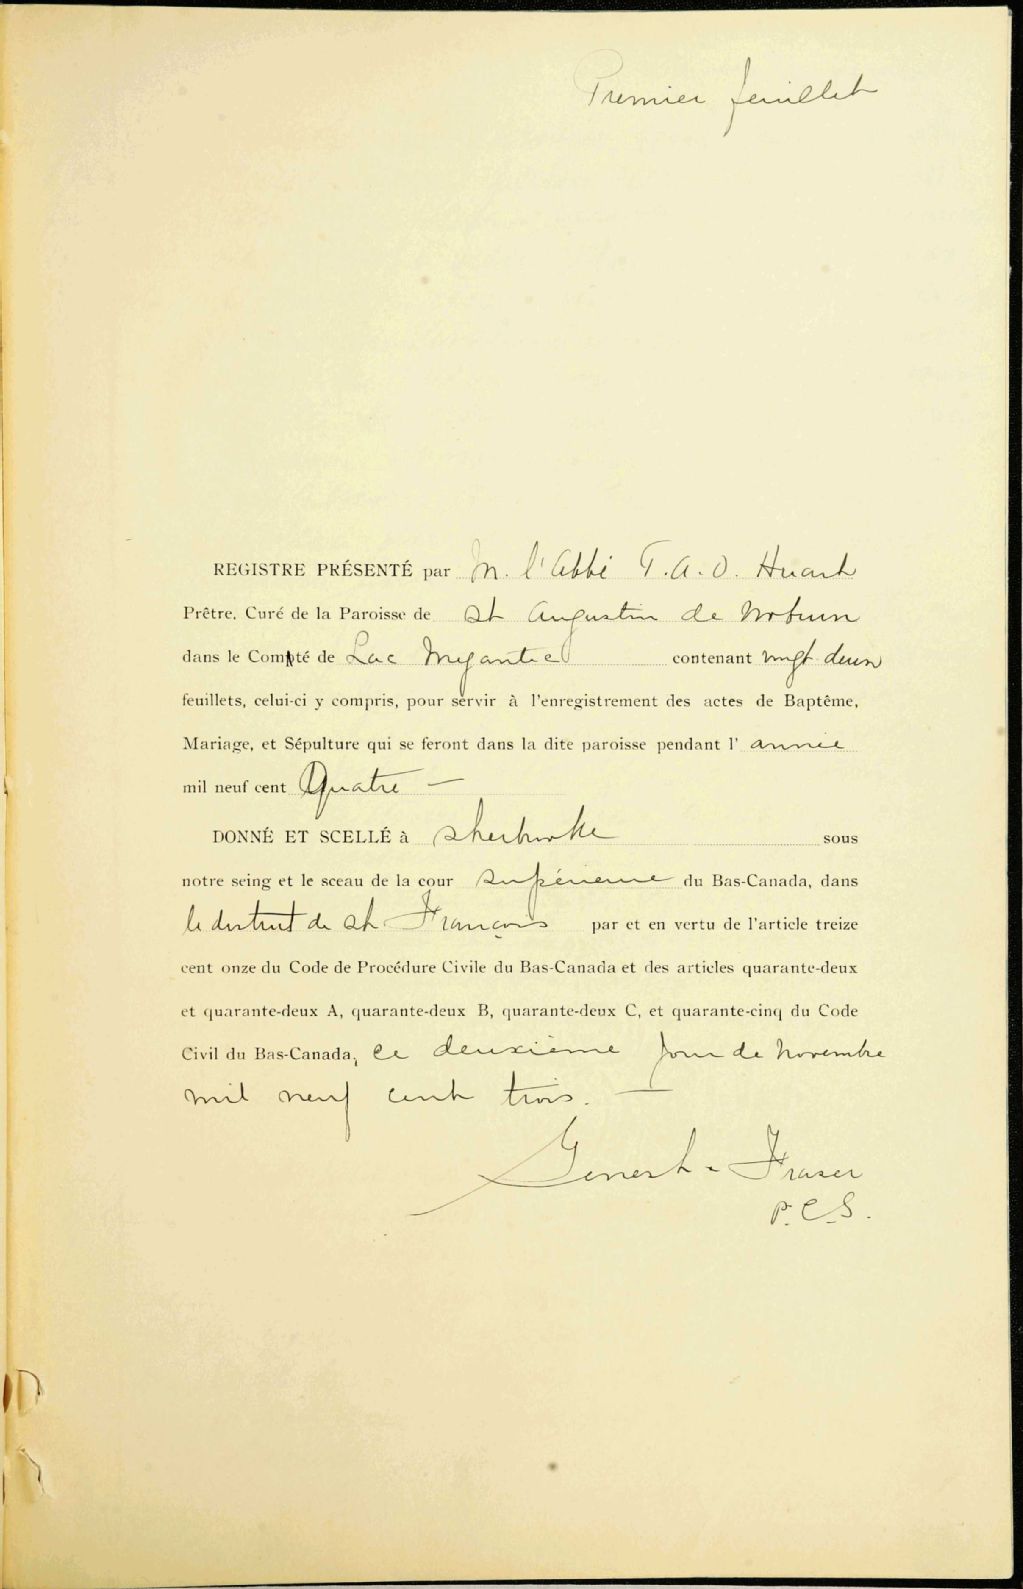 Premier feuillet
REGISTRE PRÉSENTÉ par M. l'Abbé T. A. O. Huard
Prêtre, Curé de la Paroisse de St Augustin de Woburn
dans le Compté de Lac Megantic contenant vingt deux
feuillets, celui-ci y compris, pour servir à l'enregistrement des actes de Baptême,
Mariage, et Sépulture qui se feront dans la dite paroisse pendant l' année
mil neuf cent Quatre —
DONNÉ ET SCELLÉ à Sherbrooke sous
notre seing et le sceau de la cour Supérieure du Bas-Canada, dans
le district de St François par et en vertu de l'article treize
cent onze du Code de Procédure Civile du Bas-Canada et des articles quarante-deux
et quarante-deux A, quarante-deux B, quarante-deux C, et quarante-cinq du Code
Civil du Bas-Canada, ce deuxième jour de Novembre
mil neuf cent trois. —
Genest & Fraser
P. C. S.